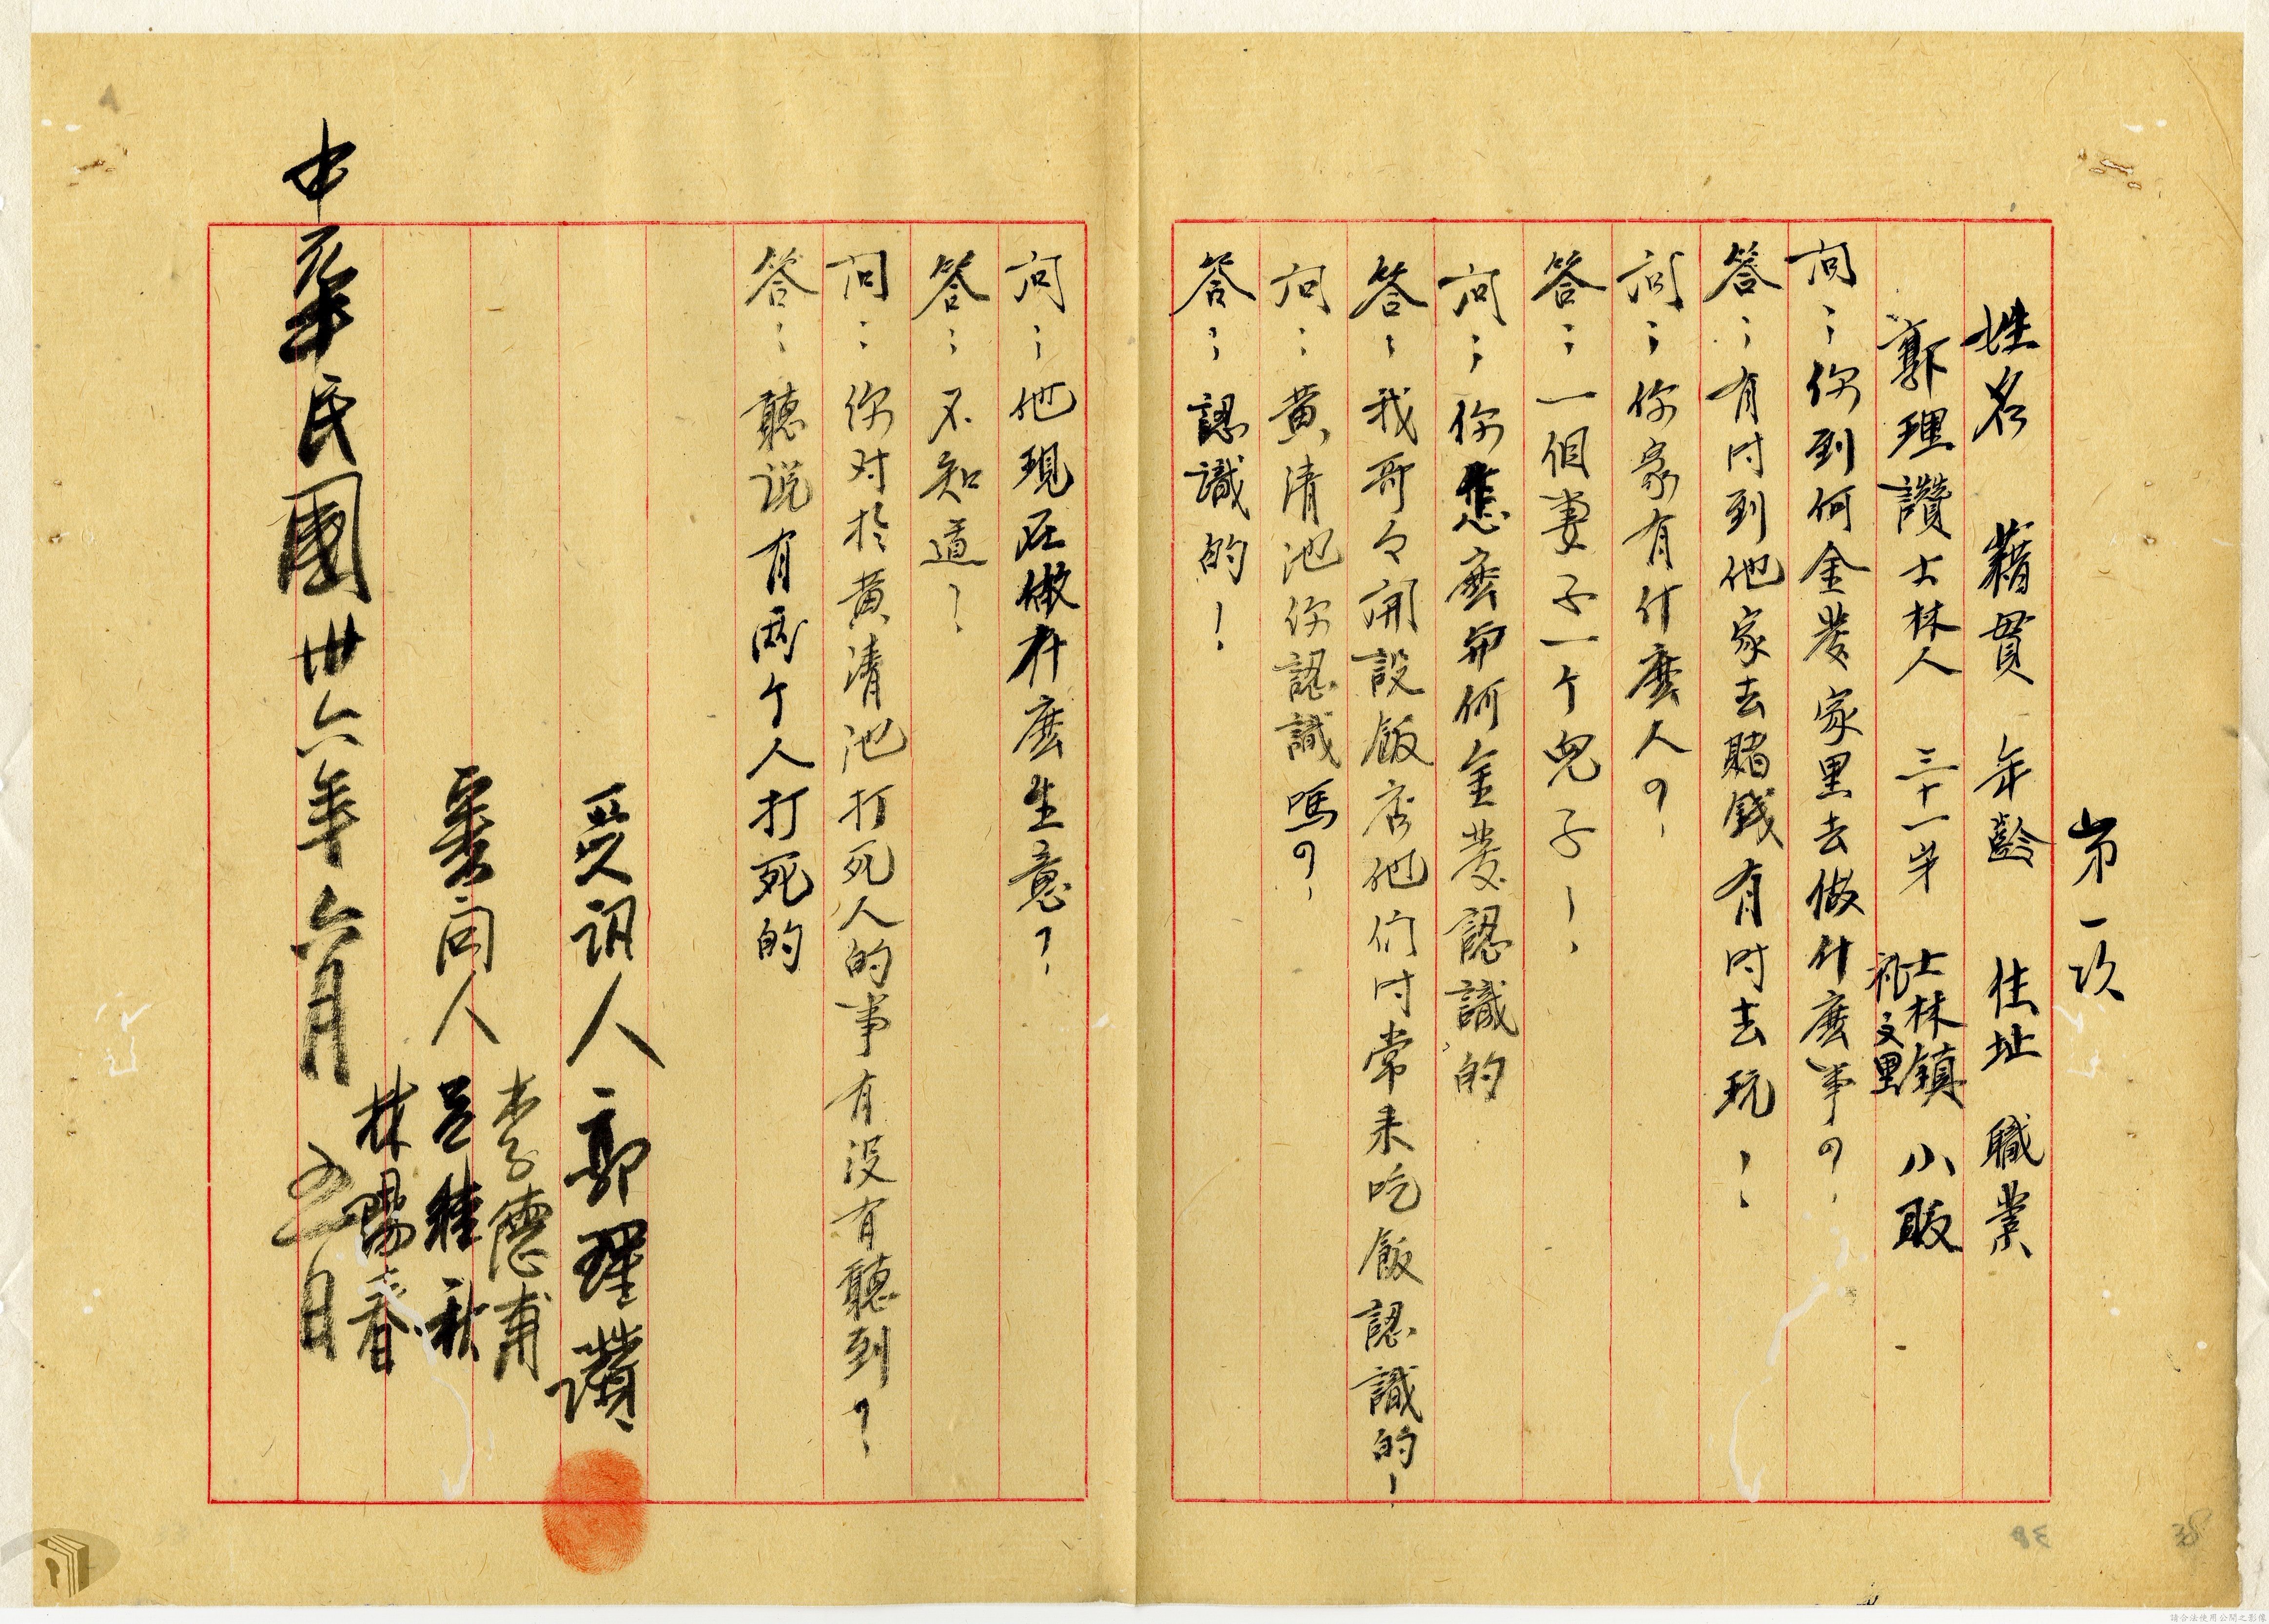 第一次
姓名 藉貫 年齡 住址 職業
郭理讚 士林人 三十一岁 士林鎮 小販
文里
问：你到何金發家里去做什麽事？
答：有时到他家去賭錢有时去玩！
问：你家有什麽人？
答：一個妻子一个兒子！
问：你怎麽和何金發認識的
答：我哥々開設飯店他们时常来吃飯認識的！
问：黄清池你認識嗎？
答：認識的！
问：他現在做什麽生意？
答：不知道！
问：你对於黄清池打死人的事有没有聽到？
答：聽说有两个人打死的
受訊人 郭理讚
李德甫
審问人 呂継秋
林陽春
中華民國卅六年六月五日
38
請合法使用公開之影像